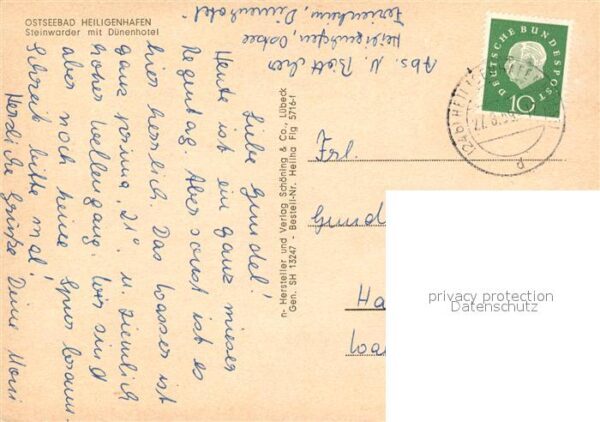 OSTSEEBAD HEILIGENHAFEN
Steinwarder mit Dünenhotel
Abs. U.
Heiligenhafen, Ostsee
Ferienheim, Dünenhotel
Liebe Gundel!
Heute ist ein ganz mieser
Regentag. Aber sonst ist es
hier herrlich. Das Wasser ist
ganz prima, 21° u. ziemlich
hoher Wellengang. Wir sind
aber noch keine Spur braun.
Schreib bitte mal!
Herzliche Grüße Deine Moni
n- Hersteller und Verlag Schöning & Co., Lübeck
Gen. SH 13247 - Bestell-Nr. Heilha Flg 5716-f
DEUTSCHE BUNDESPOST
10
(24b) HEILIGENHAFEN
Frl.
Gund
Ha
privacy protection
Datenschutz